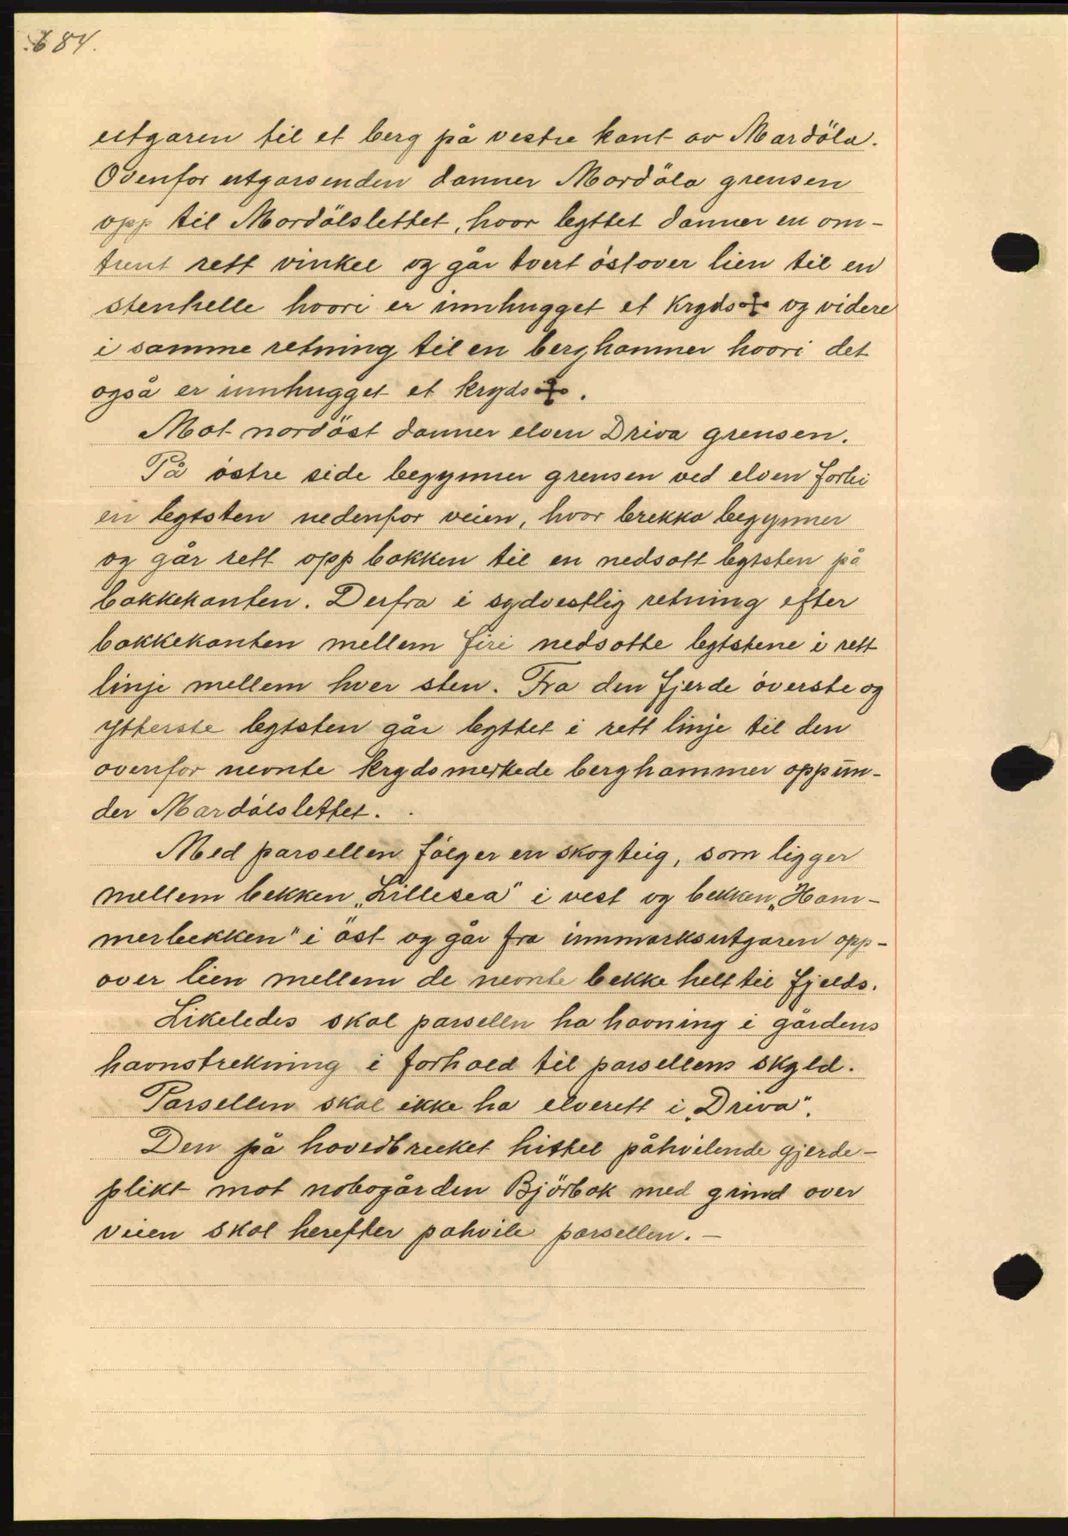 684.
utgaren til et berg på vestre kant av Mardöla.
Ovenfor utgarsenden danner Mardöla grensen
opp til Mardölslettet, hvor byttet danner en om-
trent rett vinkel og går tvert östover lien til en
stenhelle hvori er innhugget et kryds + og videre
i samme retning til en berghammer hvori det
også er innhugget et kryds + .
Mot nordöst danner elven Driva grensen.
På östre side begynner grensen ved elven forbi
en bytsten nedenfor veien, hvor brekka begynner
og går rett opp bakken til en nedsatt bytsten på
bakkekanten. Derfra i sydvestlig retning efter
bakkekanten mellem fire nedsatte bytstene i rett
linje mellem hver sten. Fra den fjerde överste og
ytterste bytsten går byttet i rett linje til den
ovenfor nevnte krydsmerkede berghammer oppun-
der Mardölslettet.
Med parsellen fölger en skogteig, som ligger
mellem bekken „Lillesea" i vest og bekken „Ham-
merbekken" i öst og går fra innmarksutgaren opp-
over lien mellem de nevnte bekke helt til fjelds.
Likeledes skal parsellen ha havning i gårdens
havnstrekning i forhold til parsellens skyld.
Parsellen skal ikke ha elverett i „Driva".
Den på hovedbruket hittil påhvilende gjerde-
plikt mot nabogården Björbak med grind over
veien skal herefter påhvile parsellen. —